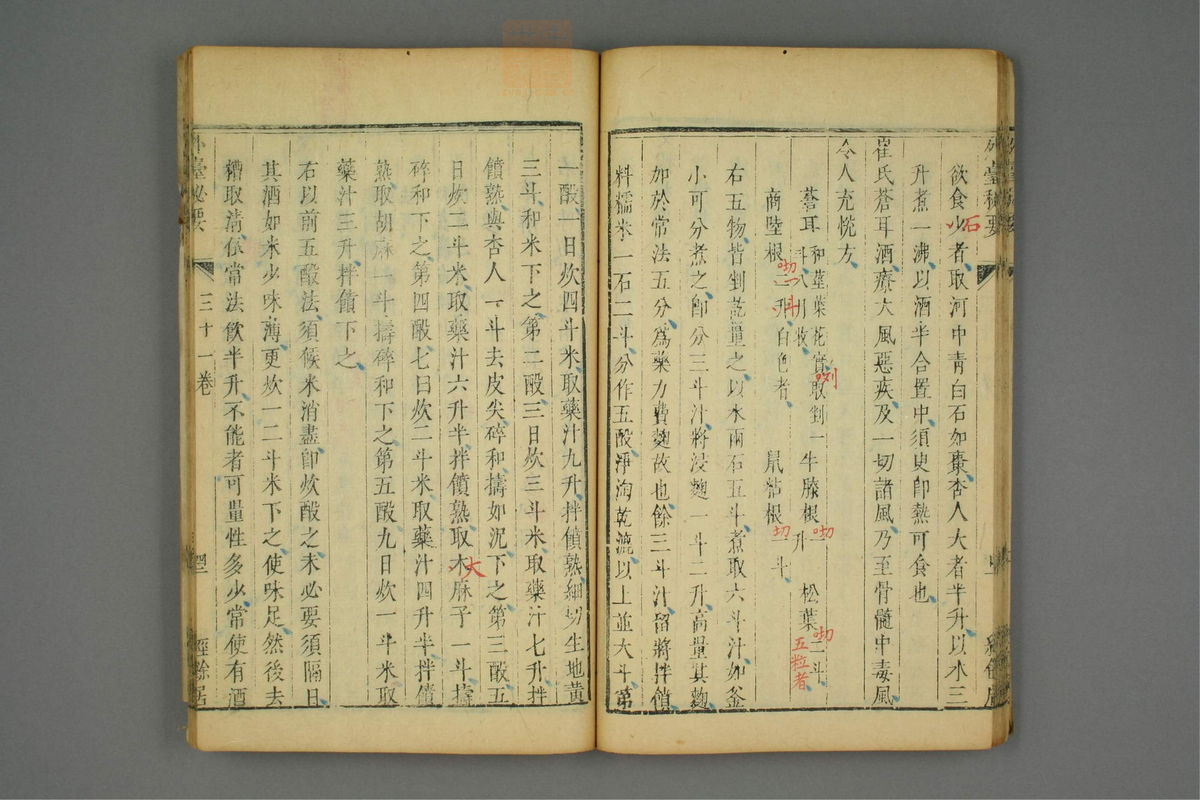 欲食少者取河中靑白石如棗杏人大者半升以水三
石
升煮一沸以酒半合置中須臾卽熱可食也
崔氏蒼耳酒療大風惡疾及一切諸風乃至骨髓中毒風
令人充悅方
蒼耳和莖葉花實取剉一斗八月收 牛膝根一升 松葉二斗
剉
切
切
五粒者
商陸根二升白色者 鼠粘根一斗
切一斗
切
右五物皆剉乾量之以水兩石五斗煮取六斗汁如釜
小可分煮之卽分三斗汁將浸麴一斗二升高量其麴
加於常法五分爲藥力費麴故也餘三斗汁留將拌饙
料糯米一石二斗分作五酘淨淘乾漉以上並大斗第
外臺秘要
一酘一日炊四斗米取藥汁九升拌饙熟細切生地黃
三斗和米下之第二酘三日炊三斗米取藥汁七升拌
饙熟與杏人一斗去皮尖碎和擣如泥下之第三酘五
日炊二斗米取藥汁六升半拌饙熟取木麻子一斗擣
大
碎和下之第四酘七日炊二斗米取藥汁四升半拌饙
熟取胡麻一斗擣碎和下之第五酘九日炊一斗米取
藥汁三升拌饙下之
右以前五酘法須候米消盡卽炊酘之未必要須隔日
其酒如米少味薄更炊一二斗米下之使味足然後去
糟取淸依常法飲半升不能者可量性多少常使有酒
外臺秘要 三十一卷 經餘居